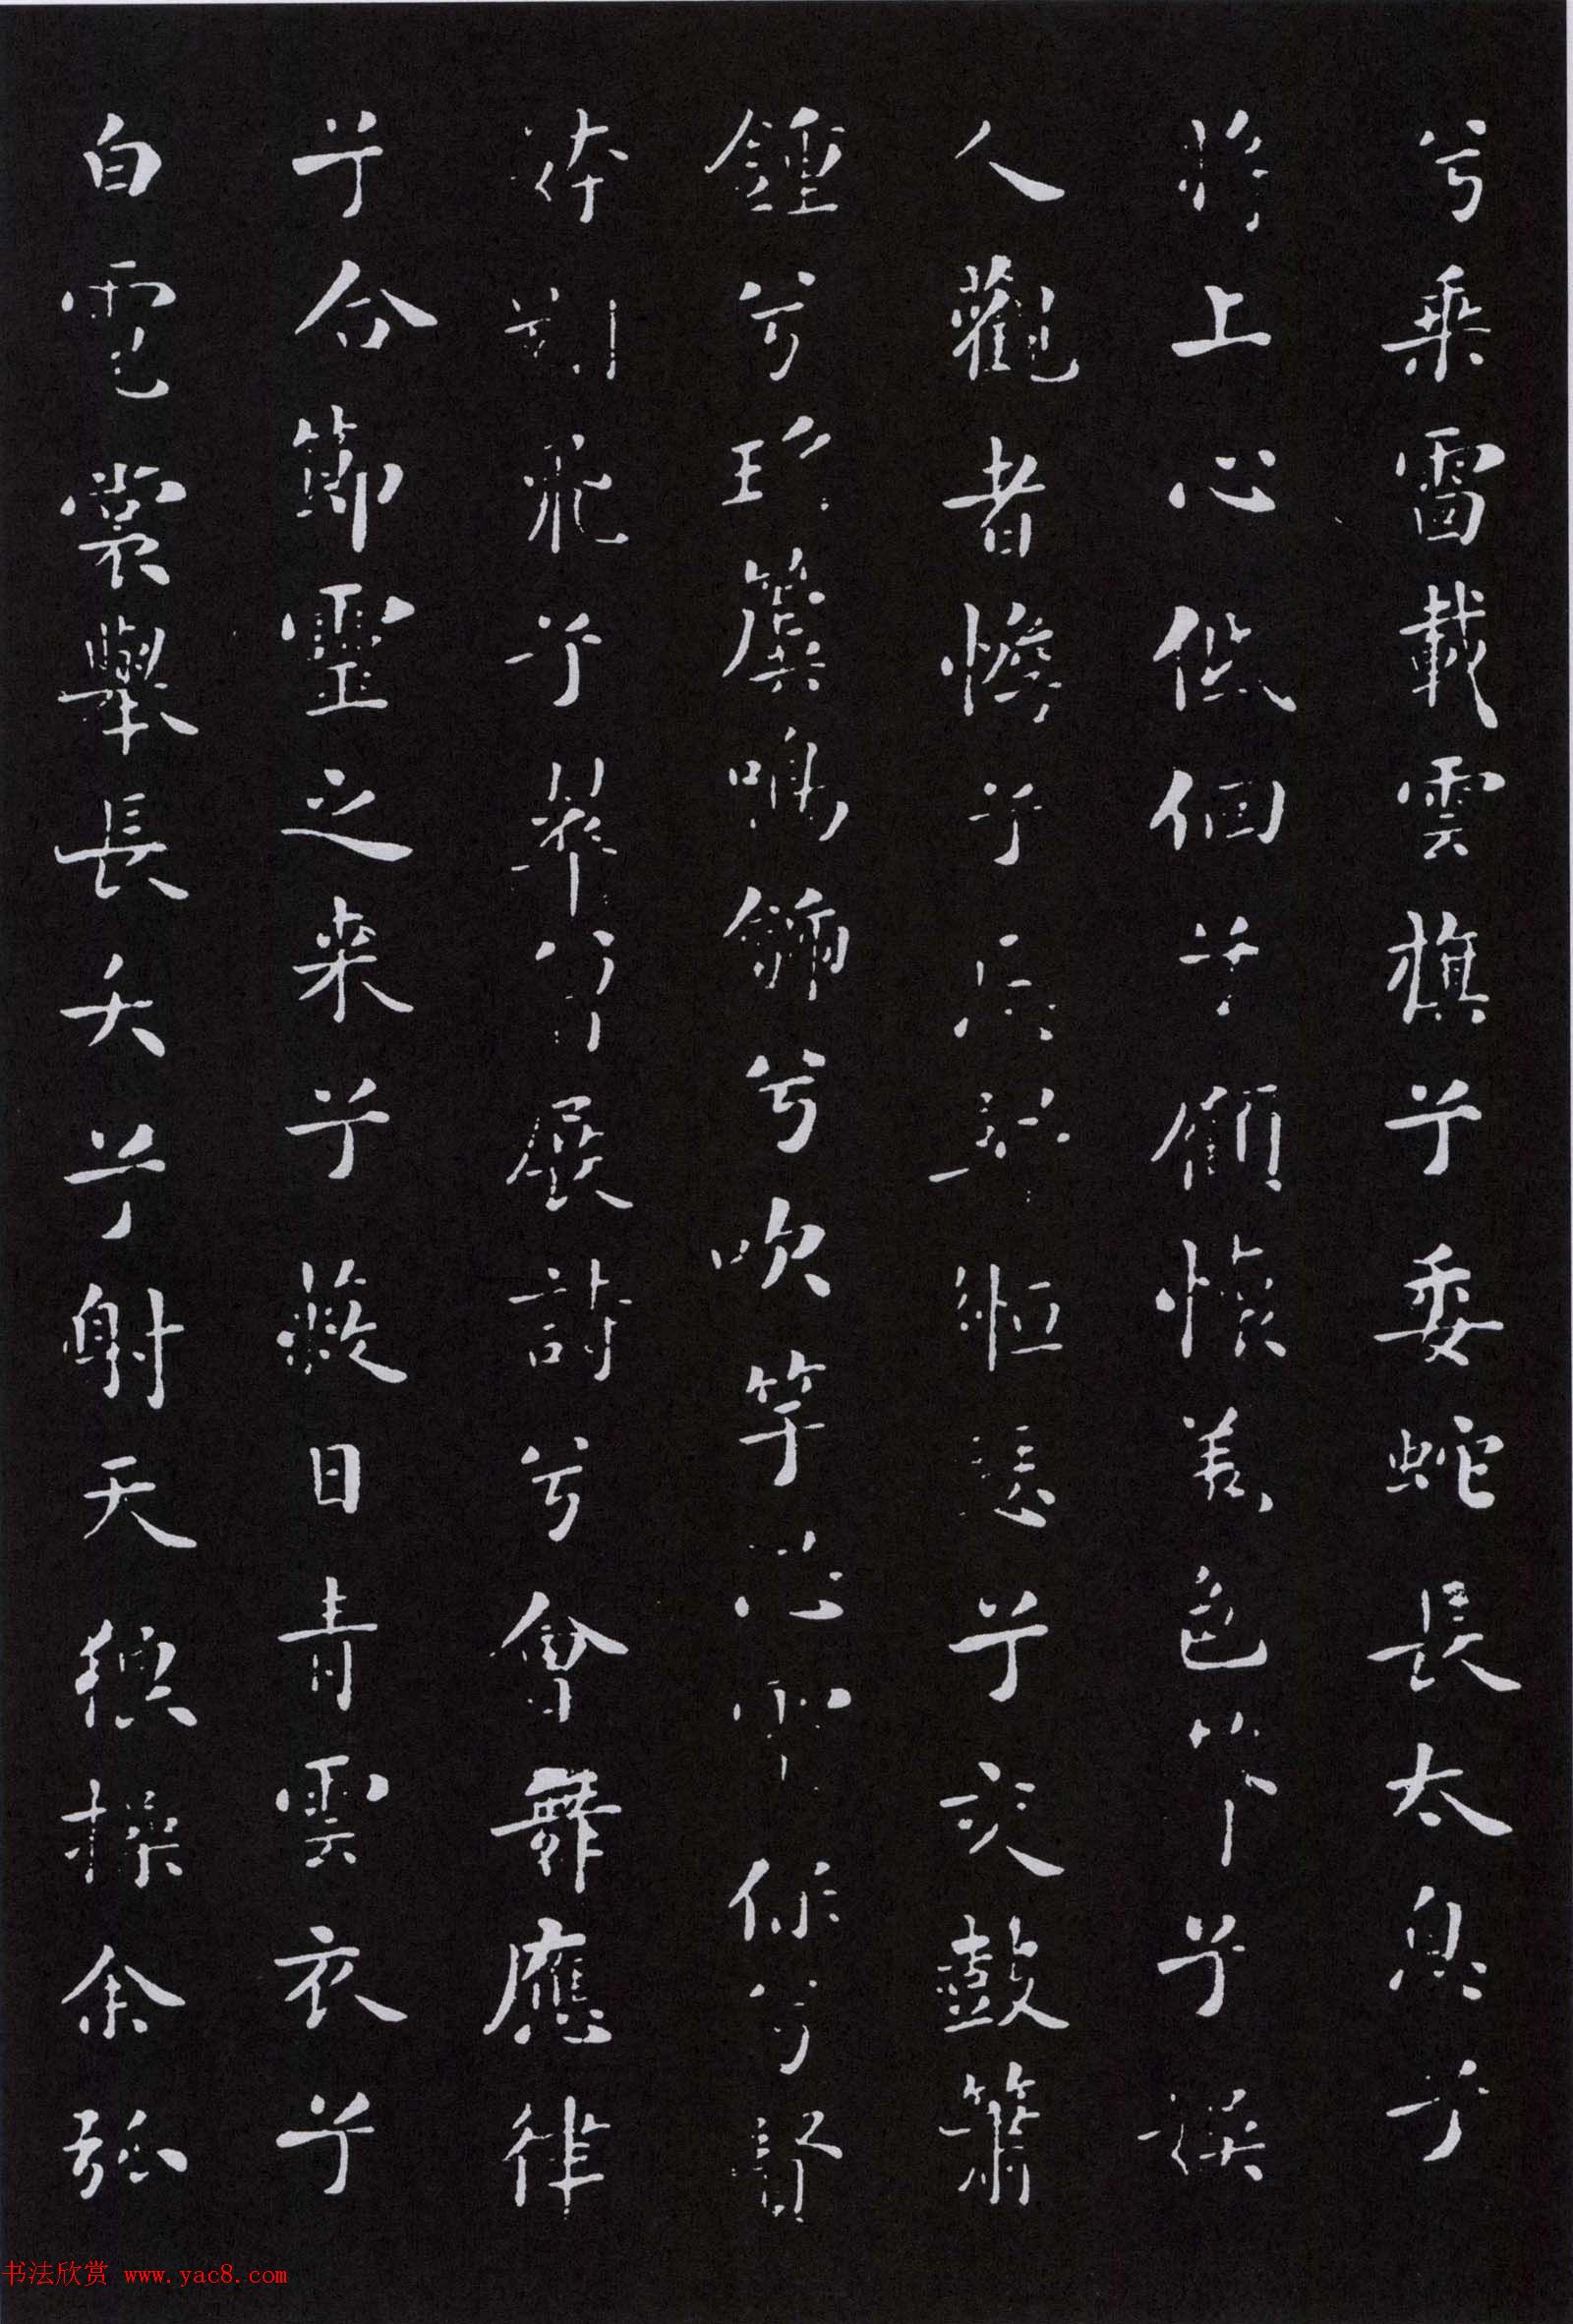 兮乘雷載雲旗兮委蛇長太息兮
將上心低佪兮顧懷羌色聲兮娛
人觀者憺兮忘歸緪瑟兮交鼓簫
鍾兮瑤簴鳴篪兮吹竽思靈保兮賢
姱翾飛兮翠曾展詩兮會舞應律
兮合節靈之来兮蔽日青雲衣兮
白霓裳舉長矢兮射天狼操余弧
书法欣赏 www.yac8.com